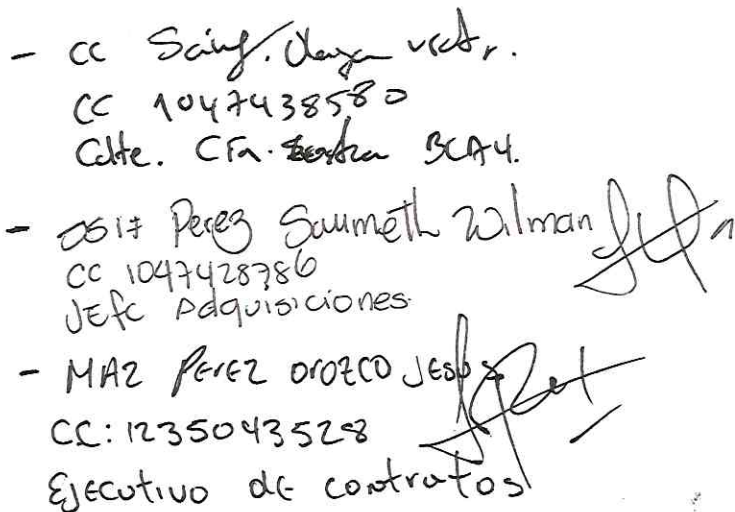 - CC
CC 1047438580
Cdte. Cía. BCA4.
- OS17 Perez Saumeth Wilman
CC 1047428786
JEfe Adquisiciones.
- MA2 PErEZ OrOZCO JEsus
CC: 1235043528
EJECutivo dE contratos